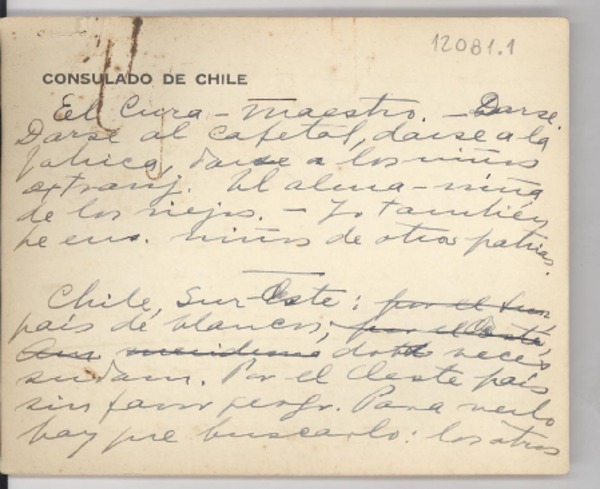 12081.1
CONSULADO DE CHILE
El Cura - Maestro. - Darse.
Darse al cafetal, darse a la
fabrica, darse a los niños
extranj. El alma - niña
de los viejos. - Yo también
pe ens. niños de otras patrias.
Chile, Sur-Oeste: por el Sur
país de blancos; por el Oeste,
dos veces
sudam. Por el Oeste país
sin favor geogr. Para verlo
hay que buscarlo: los otros